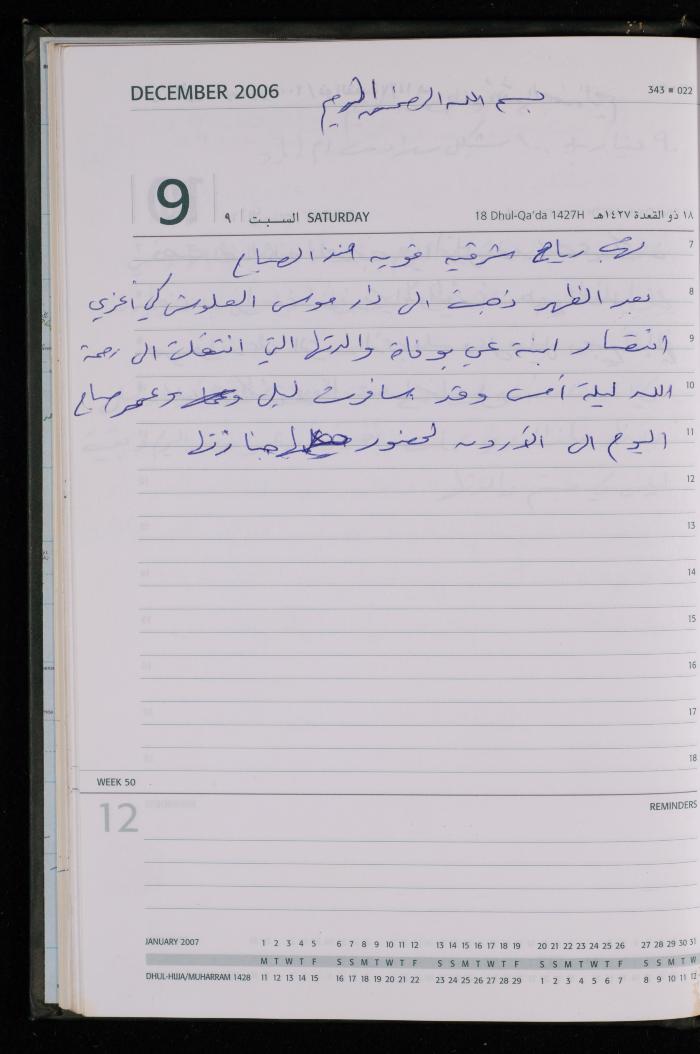 DECEMBER 2006
بسم الله الرحمن الرحيم
343 ■ 022
9
٩ السبت SATURDAY
18 Dhul-Qa'da 1427H ١٨ ذو القعدة ١٤٢٧هـ
7 تهب رياح شرقيه قويه منذ الصباح
8 بعد الظهر ذهبت الى دار موسى العلوش كي أعزي
9 انتصار ابنة عمي بوفاة والدتها التي انتقلت الى رحمة
10 الله ليلة أمس وقد سافرت ليل وعمر صباح
11 اليوم الى الأردن لحضور جنازتها
12
13
14
15
16
17
18
WEEK 50
12
REMINDERS
JANUARY 2007 1 2 3 4 5 6 7 8 9 10 11 12 13 14 15 16 17 18 19 20 21 22 23 24 25 26 27 28 29 30 31
M T W T F S S M T W T F S S M T W T F S S M T W T F S S M T W
DHUL-HIJJA/MUHARRAM 1428 11 12 13 14 15 16 17 18 19 20 21 22 23 24 25 26 27 28 29 1 2 3 4 5 6 7 8 9 10 11 12